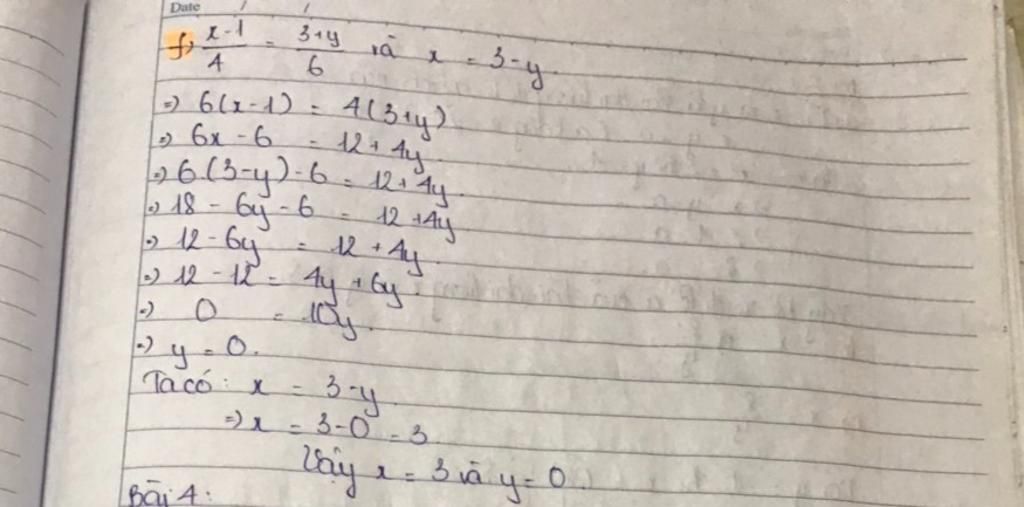 Date / /
f, x-1/4 = 3+y/6 và x = 3-y
=> 6(x-1) = 4(3+y)
=> 6x - 6 = 12 + 4y
=> 6.(3-y)-6 = 12+4y.
=> 18 - 6y - 6 = 12 + 4y
=> 12 - 6y = 12 + 4y.
=> 12 - 12 = 4y + 6y.
=> 0 = 10y.
=> y = 0.
Ta có: x = 3-y
=> x = 3-0 = 3
Vậy x = 3 và y = 0.
Bài 4: